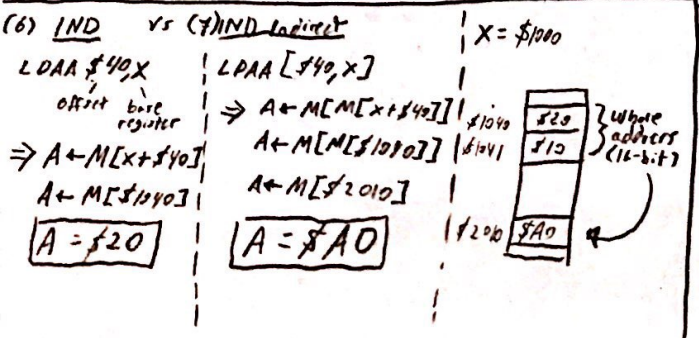 (6) IND vs (7) IND Indirect
LDAA $40,X
offset base register
⇒ A ← M[X+$40]
A ← M[$1040]
A = $20
LDAA [$40,X]
⇒ A ← M[M[X+$40]]
A ← M[M[$1040]]
A ← M[$2010]
A = $A0
X = $1000
$1040 $20
$1041 $10
whole
address
(16-bit)
$2010 $A0